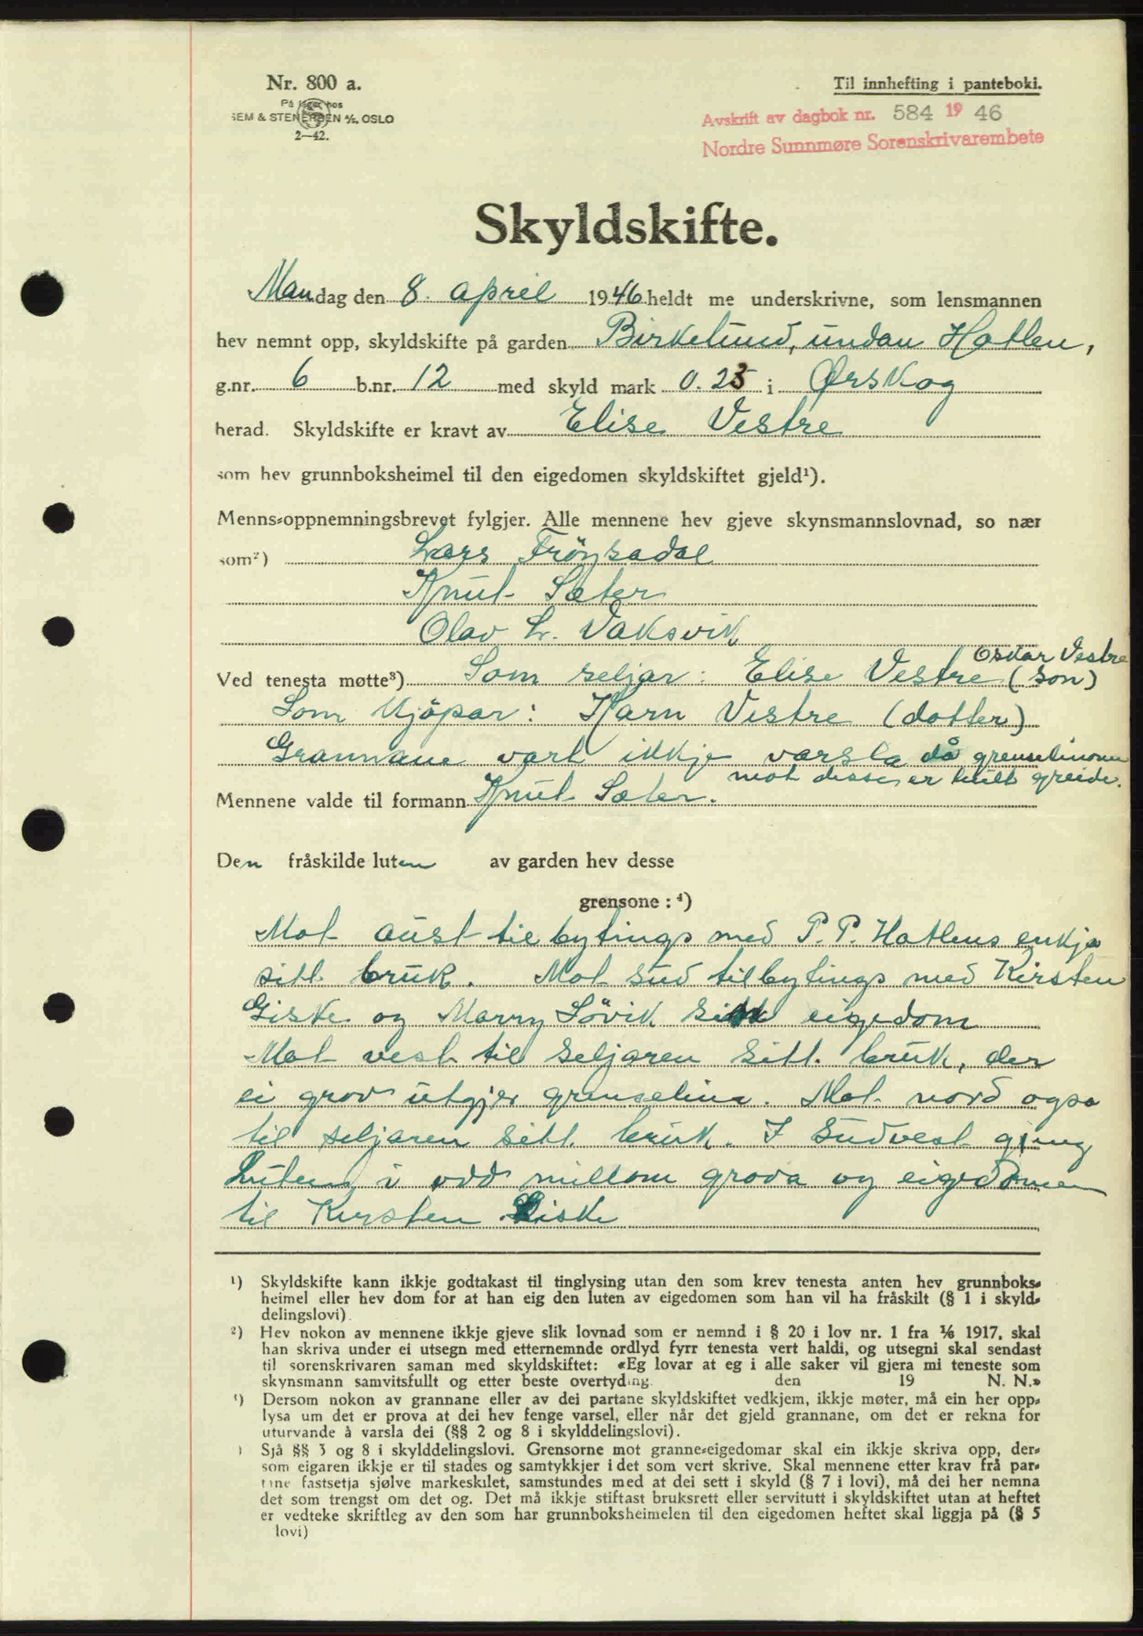 Nr. 800 a.
På lager hos
SEM & STENERSEN A/S, OSLO
2—42.
Til innhefting i panteboki.
Avskrift av dagbok nr. 584 19 46
Nordre Sunnmøre Sorenskrivarembete
Skyldskifte.
Mandag den 8. april 1946 heldt me underskrivne, som lensmannen
hev nemnt opp, skyldskifte på garden Birkelund, undan Hatlen,
g.nr. 6 b.nr. 12 med skyld mark 0.25 i Ørskog
herad. Skyldskifte er kravt av Elise Vestre
som hev grunnboksheimel til den eigedomen skyldskiftet gjeld¹).
Menns-oppnemningsbrevet fylgjer. Alle mennene hev gjeve skynsmannslovnad, so nær
som²) Lars Fröysadal
Knut Sæter
Olav L. Vaksvik
Oskar Vestre
Ved tenesta møtte³) Som seljar: Elise Vestre (son)
Som kjöpar: Karn Vestre (dotter)
Grannane vart ikkje varsla då grenselinone
mot disse er heilt greide.
Mennene valde til formann Knut Sæter.
Den fråskilde luten av garden hev desse
grensone : ⁴)
Mot aust til bytings med P. P. Hatlens enkja
sitt bruk. Mot sud til bytings med Kirsten
Giske og Marry Lövik sin eigedom
Mot vest til seljaren sitt bruk, der
ei grov utgjer grenselina. Mot nord ogso
til seljaren sitt bruk. I sudvest gjeng
luten i odd millom grova og eigedomen
til Kirsten Giske
¹) Skyldskifte kann ikkje godtakast til tinglysing utan den som krev tenesta anten hev grunnboks-
heimel eller hev dom for at han eig den luten av eigedomen som han vil ha fråskilt (§ 1 i skyld-
delingslovi).
²) Hev nokon av mennene ikkje gjeve slik lovnad som er nemnd i § 20 i lov nr. 1 fra 1/6 1917, skal
han skriva under ei utsegn med etternemnde ordlyd fyrr tenesta vert haldi, og utsegni skal sendast
til sorenskrivaren saman med skyldskiftet: «Eg lovar at eg i alle saker vil gjera mi teneste som
skynsmann samvitsfullt og etter beste overtyding. den 19 N. N.»
³) Dersom nokon av grannane eller av dei partane skyldskiftet vedkjem, ikkje møter, må ein her opp-
lysa um det er prova at dei hev fenge varsel, eller når det gjeld grannane, om det er rekna for
uturvande å varsla dei (§§ 2 og 8 i skylddelingslovi).
) Sjå §§ 3 og 8 i skylddelingslovi. Grensorne mot granne-eigedomar skal ein ikkje skriva opp, der-
som eigaren ikkje er til stades og samtykkjer i det som vert skrive. Skal mennene etter krav frå par-
tane fastsetja sjølve markeskilet, samstundes med at dei sett i skyld (§ 7 i lovi), må dei her nemna
det som trengst om det og. Det må ikkje stiftast bruksrett eller servitutt i skyldskiftet utan at heftet
er vedteke skriftleg av den som har grunnboksheimelen til den eigedomen heftet skal liggja på (§ 5
lovi)